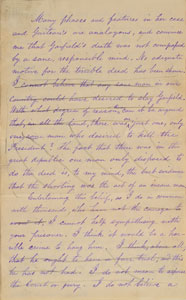 Many phases and features in her case
and Guiteau's are analogous, and convince
me that Garfield's death was not compassed
by a sane, responsible mind. No adequate
motive for the terrible deed has been shown.
I cannot believe that any sane man in our
country could have desired to slay Garfield.
that, in all this land, there was just one, only
one man who desired to kill the
President? The fact that there was in this
great Republic one man only disposed to
do the deed is, to my mind, the best evidence
that the shooting was the act of an insane man.
Entertaining this belief, as I do in common
with thousands who have not the courage to
I could help sympathizing with
your prisoner. I think it would be a hor-
rible crime to hang him. I think, above all,
that he ought to have a fair trial, and this
he has not had. I do not mean to asperse
the Court or jury. I do not believe a